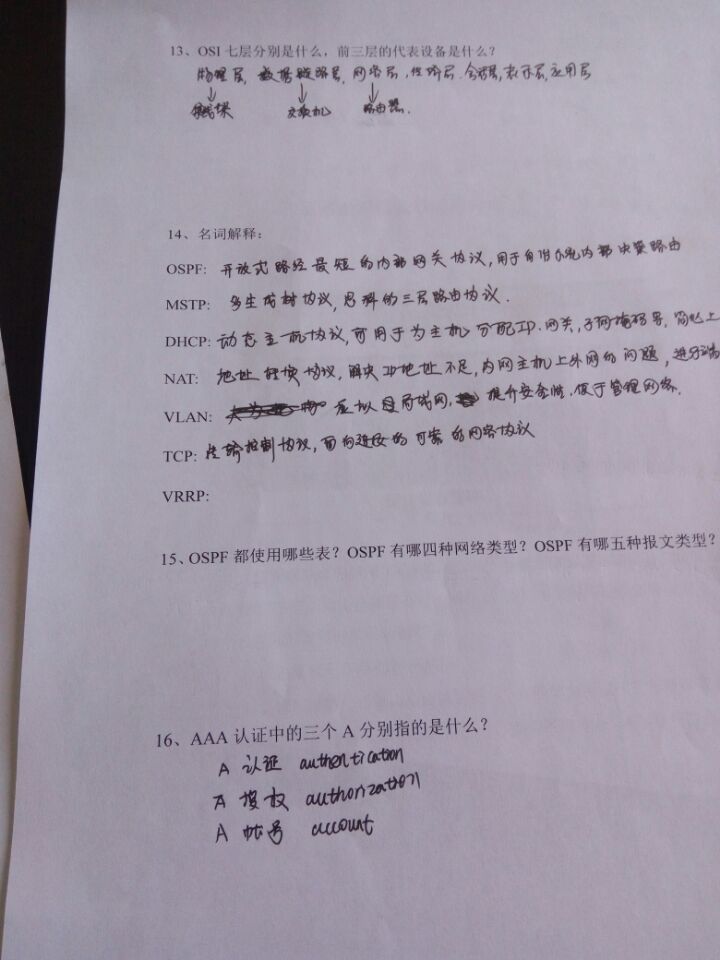 13、OSI 七层分别是什么，前三层的代表设备是什么？
物理层，数据链路层，网络层，传输层，会话层，表示层，应用层
交换机 路由器.
14、名词解释：
OSPF: 开放式路径最短的内部网关协议，用于自治系统内部决策路由
MSTP: 多生成树协议，思科的三层路由协议.
DHCP: 动态主机协议，可用于为主机分配IP.网关，子网掩码等，简化上
NAT: 地址转换协议，解决IP地址不足，内网主机上外网的问题，进行端
VLAN: 虚拟局域网，提升安全性.便于管理网络.
TCP: 传输控制协议，面向连接的可靠的网络协议
VRRP:
15、OSPF 都使用哪些表？OSPF 有哪四种网络类型？OSPF 有哪五种报文类型？
16、AAA 认证中的三个 A 分别指的是什么？
A 认证 authentication
A 授权 authorization
A 帐号 account